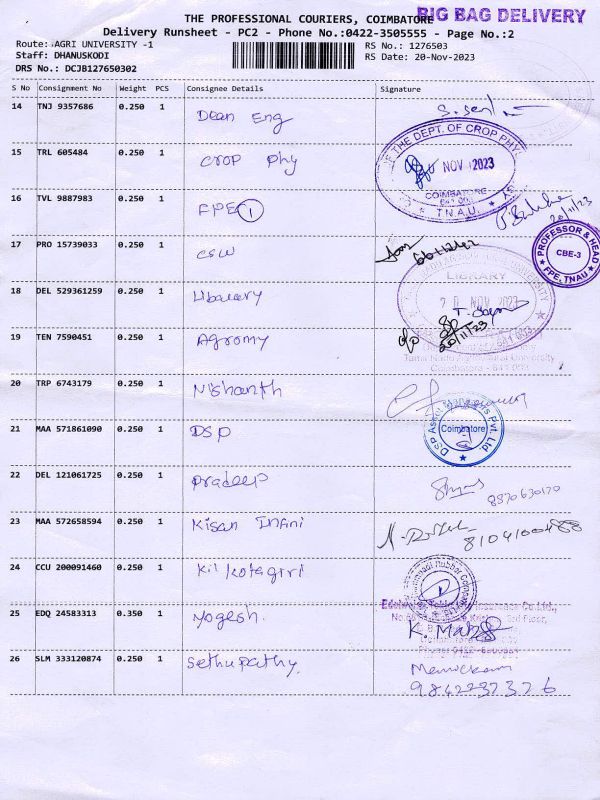 BIG BAG DELIVERY
THE PROFESSIONAL COURIERS, COIMBATORE
Delivery Runsheet - PC2 - Phone No.:0422-3505555 - Page No.:2
Route: AGRI UNIVERSITY -1
RS No.: 1276503
Staff: DHANUSKODI
RS Date: 20-Nov-2023
DRS No.: DCJB127650302
S No Consignment No Weight PCS Consignee Details Signature
14 TNJ 9357686 0.250 1 Dean Eng
15 TRL 605484 0.250 1 Crop Phy
THE DEPT. OF CROP PHY
NOV 2023
COIMBATORE
T.N.A.U.
16 TVL 9887983 0.250 1 FPE 1
20/11/23
PROFESSOR & HEAD
CBE-3
FPE, TNAU
17 PRO 15739033 0.250 1 CSW
LIBRARY
18 DEL 529361259 0.250 1 Library
20 NOV 2023
20/11/23
19 TEN 7590451 0.250 1 Agromy
20 TRP 6743179 0.250 1 Nishanth
21 MAA 571861090 0.250 1 DSP
DSP Asset Managers Pvt. Ltd.
Coimbatore
22 DEL 121061725 0.250 1 Pradeep
8870630170
23 MAA 572658594 0.250 1 Kisan
8104100488
24 CCU 200091460 0.250 1 Kil Kotagiri
25 EDQ 24583313 0.350 1 Yogesh.
26 SLM 333120874 0.250 1 Sethupathy.
9842237376